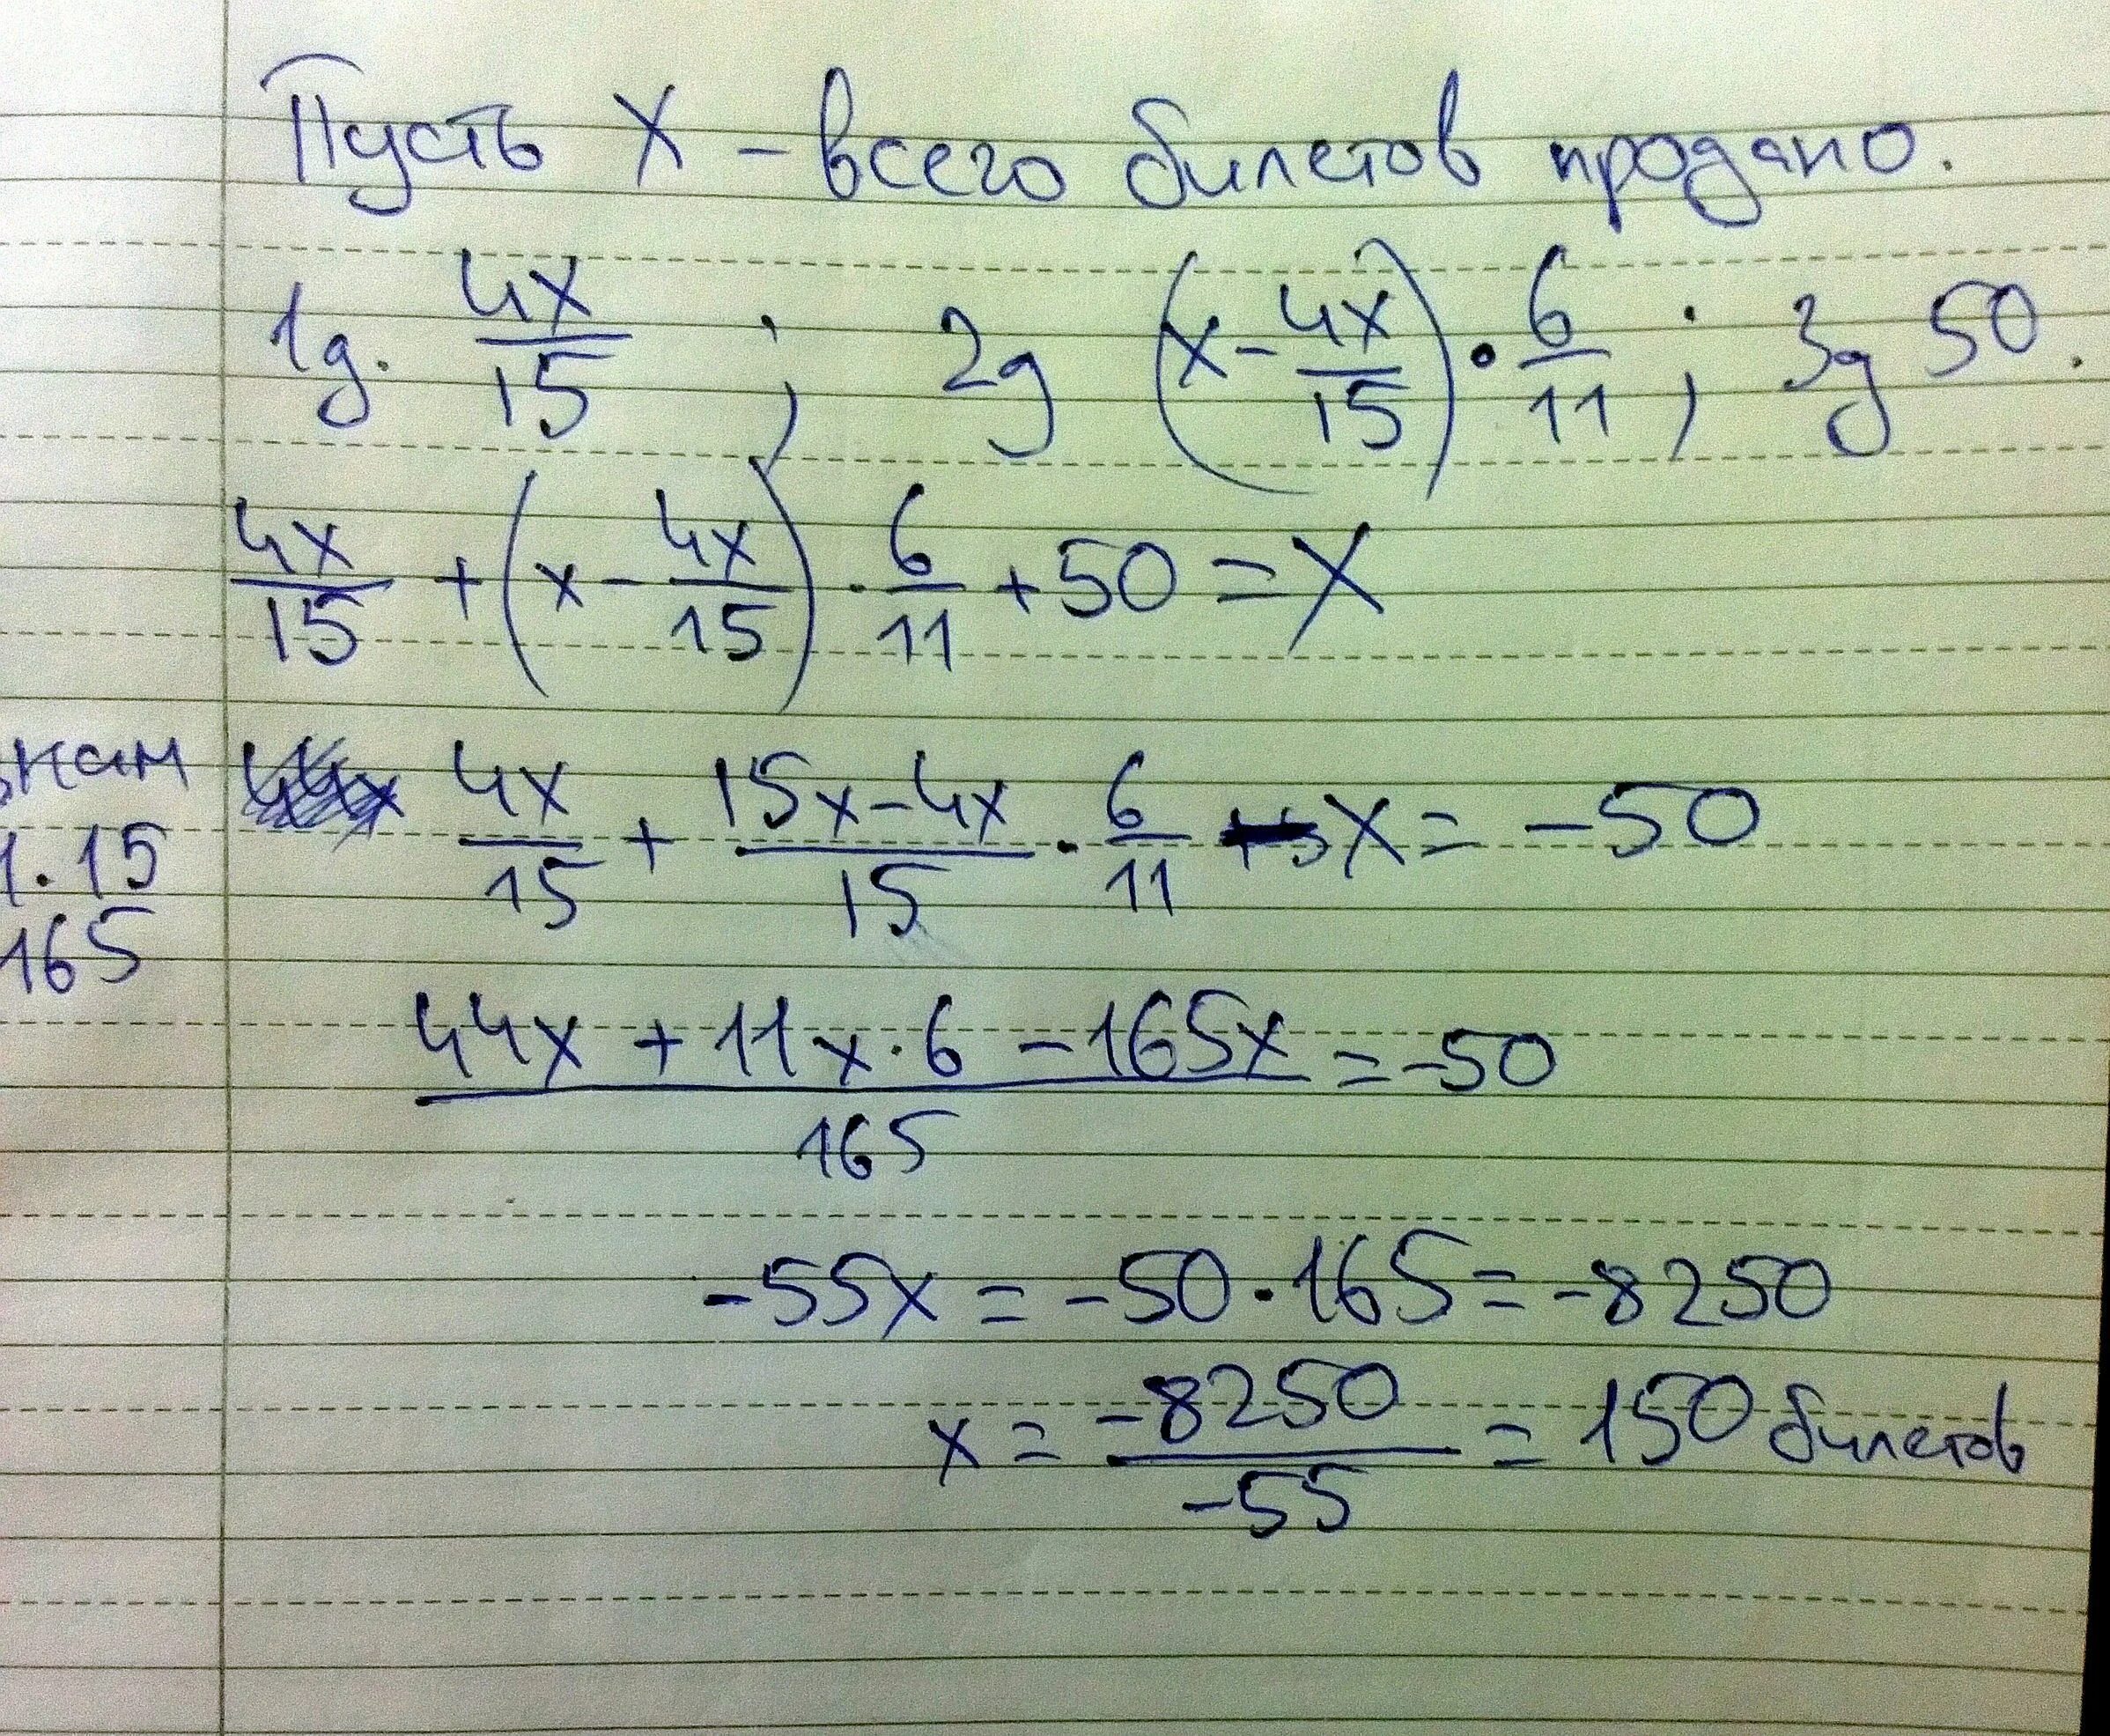 Пусть x - всего билетов продано.
1д. 4x/15 ; 2д (x - 4x/15) · 6/11 ; 3д 50.
4x/15 + (x - 4x/15) · 6/11 + 50 = x
4x/15 + (15x - 4x)/15 · 6/11 - x = -50
знам
1·15
165
(44x + 11x·6 - 165x)/165 = -50
-55x = -50·165 = -8250
x = -8250/-55 = 150 билетов